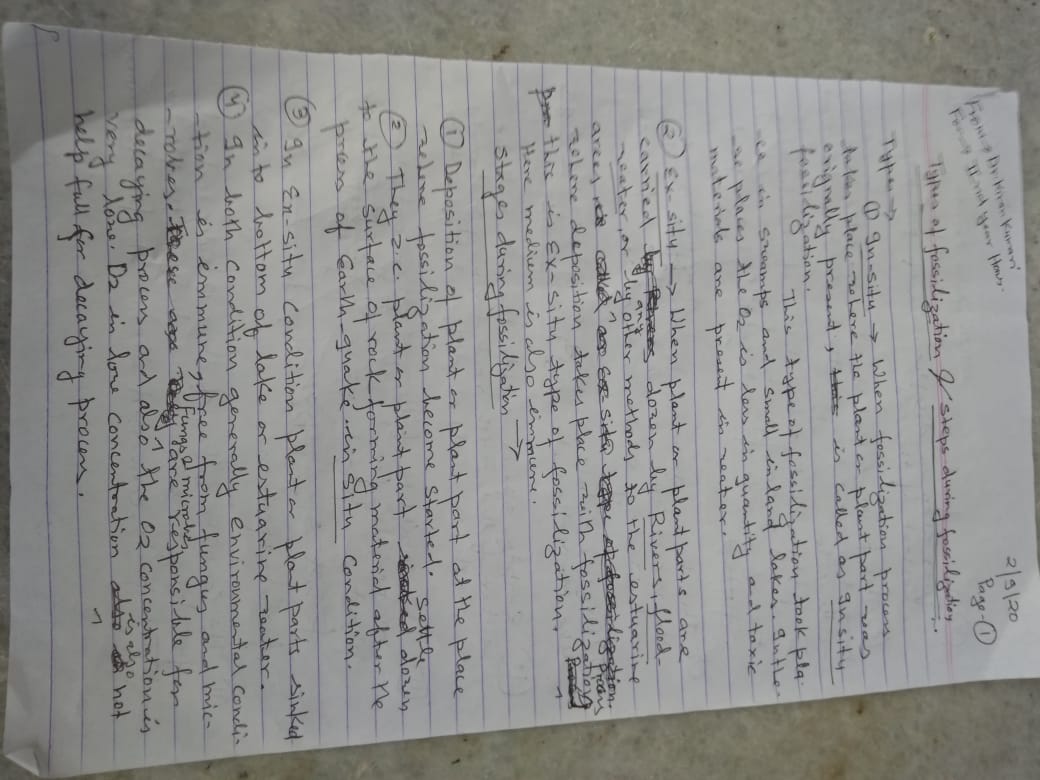 2/9/20
Page-①
From:- Dr. Kiran Kumari
For:- II-nd year Hons.
Types of fossilization / steps during fossilization
Types →
① In-situ → When fossilization process
takes place where the plant or plant part was
orignally present, is called as Insitu
fossilization.
This type of fossilization took pla-
ce in swamps and small inland lakes. In the-
se places the O2 is less in quantity and toxic
materials are present in water.
② Ex-sity → When plant or plant parts are
carried down by Rivers, flood-
water, or by any other methods to the estuarine
areas
where deposition takes place with fossilization process
this is Ex-situ type of fossilization.
Here medium is also immune.
Stages during fossilization →
① Deposition of plant or plant part at the place
where fossilization become started.
② They i.e. plant or plant part settle down
to the surface of rock forming material after the
process of Earth-quake in situ condition.
③ In Ex-sity condition plant or plant parts sinked
into bottom of lake or estuarine water.
④ In both condition generally environmental condi-
tion is emmune, free from fungus and mic-
robes. Fungs & microbes are responsible for
decaying process and also the O2 concentration is
very lone. O2 in lone concentration is also not
help full for decaying process.